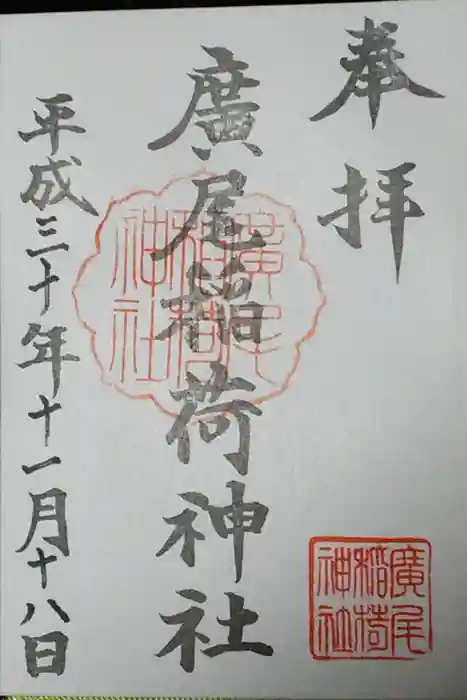 奉拝
廣尾稲荷神社
平成三十年十一月十八日
廣尾稲荷神社
廣尾稲荷神社